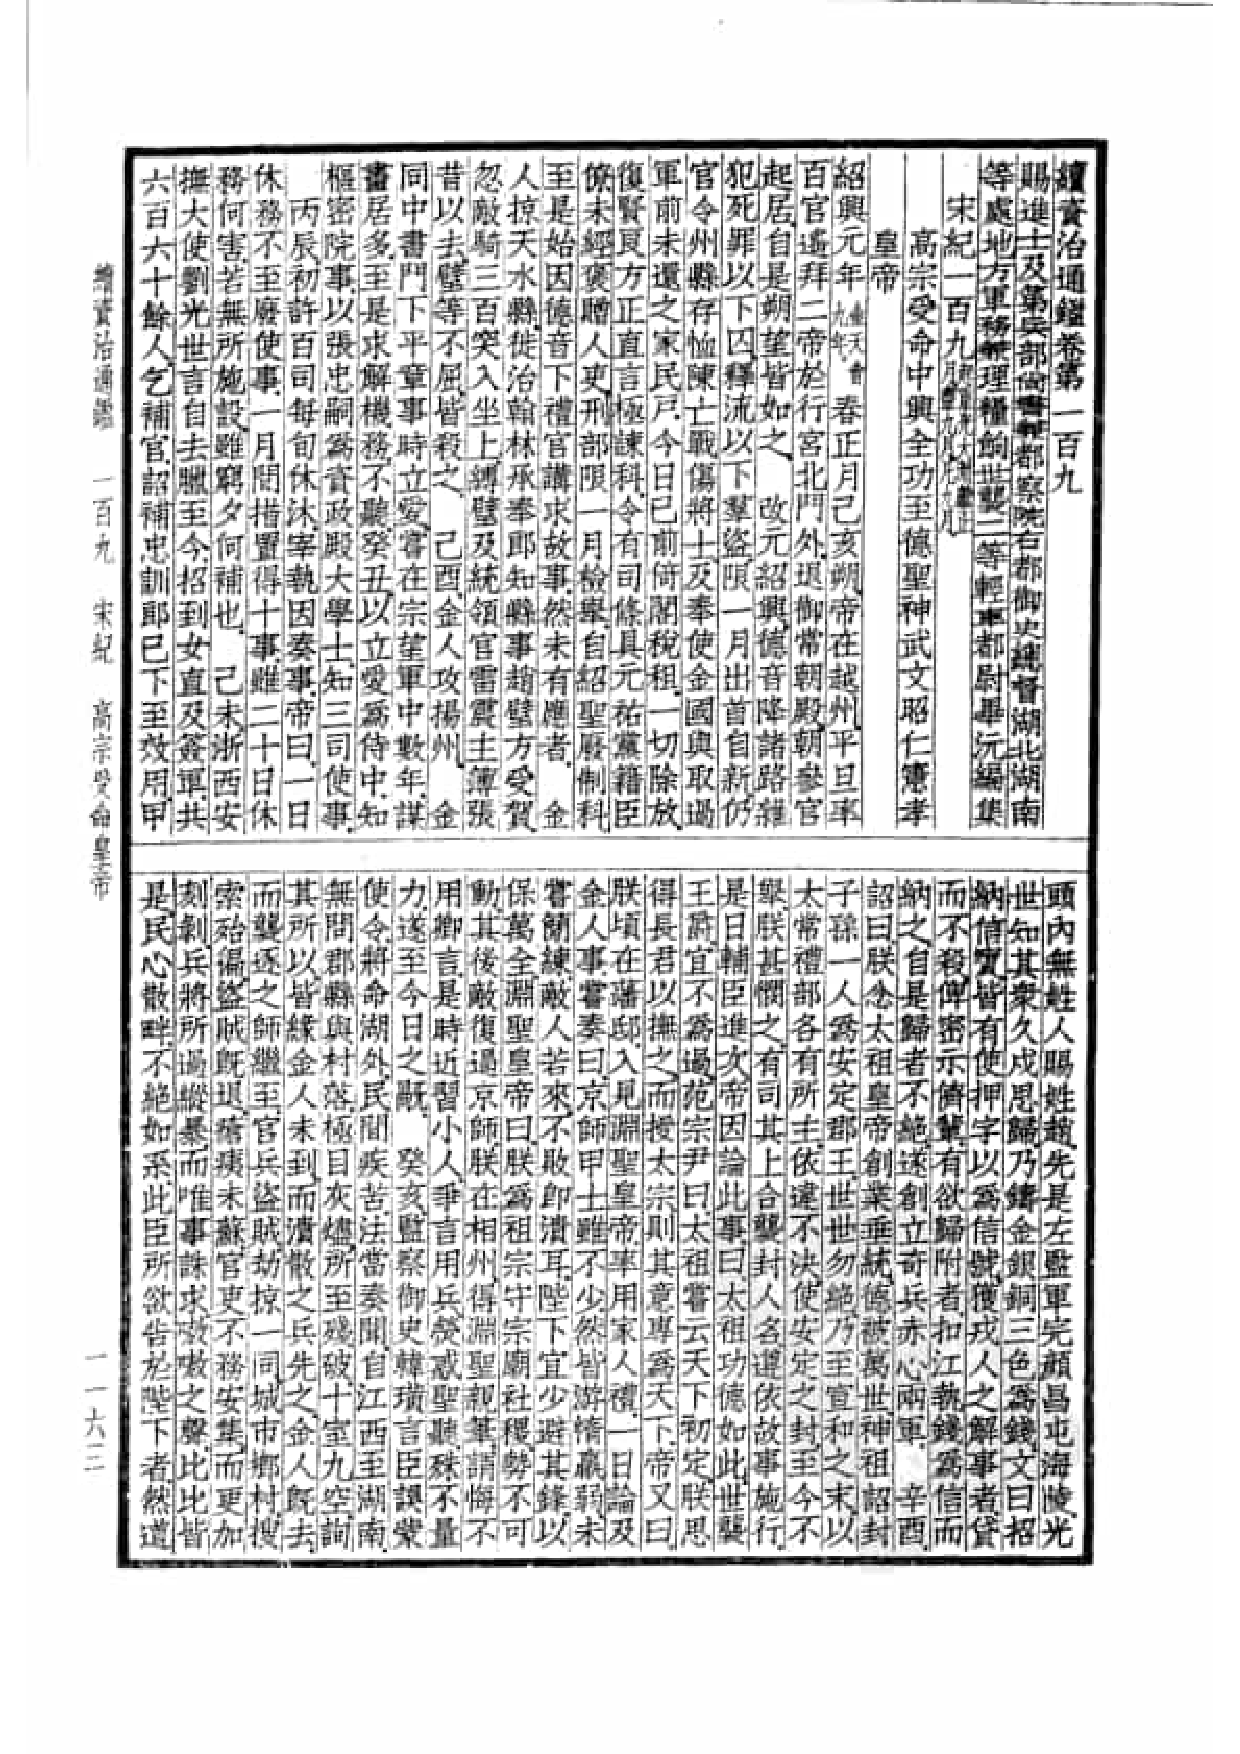 續資治通鑑卷第一百九
賜進士及第兵部尚書兼都察院右都御史總督湖北湖南
等處地方軍務兼理糧餉世襲二等輕車都尉畢沅編集
宋紀一百九
高宗受命中興全功至德聖神武文昭仁憲孝
皇帝
紹興元年 春正月己亥朔帝在越州平旦率
百官遙拜二帝於行宮北門外退御常朝殿朝參官
起居自是朔望皆如之 改元紹興德音降諸路雜
犯死罪以下囚釋流以下羣盜限一月出首自新仍
官令州縣存恤陳亡戰傷將士及奉使金國與取過
軍前未還之家民戶今日已前倚閣稅租一切除放
復賢良方正直言極諫科令有司條具元祐黨籍臣
僚未經褒贈人吏刑部限一月檢舉自紹聖廢制科
至是始因德音下禮官講求故事然未有應者 金
人掠天水縣徙治翰林承奉郎知縣事趙璧方受賀
忽敵騎三百突入坐上縛璧及統領官雷震主簿張
昔以去璧等不屈皆殺之 己酉金人攻揚州 金
同中書門下平章事時立愛嘗在宗望軍中數年謀
畫居多至是求解機務不聽癸丑以立愛爲侍中知
樞密院事以張忠嗣爲資政殿大學士知三司使事
丙辰初許百司每旬休沐宰執因奏事帝曰一日
休務不至廢使事一月閒措置得十事雖二十日休
務何害若無所施設雖窮夕何補也 己未浙西安
撫大使劉光世言自去臘至今招到女直及簽軍共
六百六十餘人乞補官詔補忠訓郎已下至效用甲
頭內無姓人賜姓趙先是左監軍完顏昌屯海陵光
世知其衆久戍思歸乃鑄金銀銅三色爲錢文曰招
納信寶皆有使押字以爲信號獲戎人之解事者貸
而不殺俾密示儕輩有欲歸附者扣江執錢爲信而
納之自是歸者不絕遂創立奇兵赤心兩軍 辛酉
詔曰朕念太祖皇帝創業垂統德被萬世神祖詔封
子孫一人爲安定郡王世世勿絕乃至宣和之末以
太常禮部各有所主依違不決使安定之封至今不
舉朕甚憫之有司其上合襲封人名遵依故事施行
是日輔臣進次帝因論此事曰太祖功德如此世襲
王爵宜不爲過范宗尹曰太祖嘗云天下初定朕思
得長君以撫之而授太宗則其意專爲天下帝又曰
朕頃在藩邸入見淵聖皇帝率用家人禮一日論及
金人事嘗奏曰京師甲士雖不少然皆游惰羸弱未
嘗簡練敵人若來不敗卽潰耳陛下宜少避其鋒以
保萬全淵聖皇帝曰朕爲祖宗守宗廟社稷勢不可
動其後敵復過京師朕在相州得淵聖親筆謂悔不
用卿言是時近習小人爭言用兵熒惑聖聽殊不量
力遂至今日之厭 癸亥監察御史韓璜言臣誤蒙
使令將命湖外民閒疾苦法當奏聞自江西至湖南
無間郡縣與村落極目灰燼所至殘破十室九空詢
其所以皆緣金人未到而潰散之兵先之金人旣去
而襲逐之師繼至官兵盜賊劫掠一同城市鄉村搜
索殆徧盜賊旣退瘡痍未蘇官吏不務安集而更加
刻剝兵將所過縱暴而唯事誅求嗷嗷之聲比比皆
是民心散畔不絕如系此臣所欲告於陛下者然道
續資治通鑑 一百九 宋紀 高宗受命皇帝
一一六三